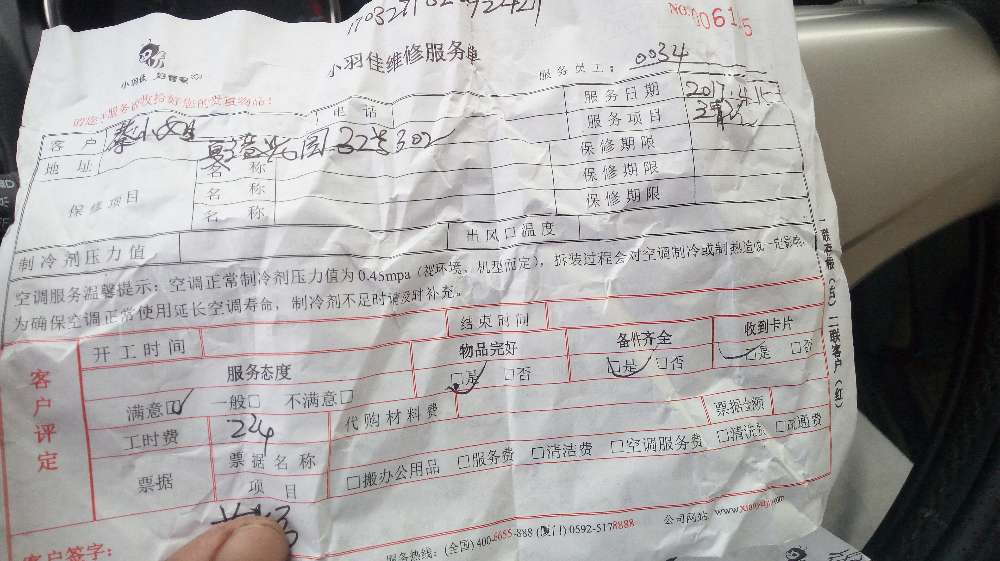 小羽佳维修服务单
服务员工：0034
电话
服务日期 2017.4.15
客户 蔡小姐
服务项目
地址
保修项目
名称 保修期限
名称 保修期限
名称 保修期限
制冷剂压力值 出风口温度
空调服务温馨提示：空调正常制冷剂压力值为0.45mpa（视环境、机型而定），拆装过程会对空调制冷或制热造成一定影响，
为确保空调正常使用延长空调寿命，制冷剂不足时请及时补充。
一联存根（白）二联客户（红）
客户评定
开工时间 结束时间
服务态度 物品完好 备件齐全 收到卡片
满意□ 一般□ 不满意□ □是 □否 □是 □否 □是 □否
工时费 224 代购材料费 票据金额
票据 票据名称
项目 □搬办公用品 □服务费 □清洁费 □空调服务费 □清洗费 □疏通费
客户签字：
服务热线：(全国) 400-6655-888 (厦门) 0592-5178888 公司网站